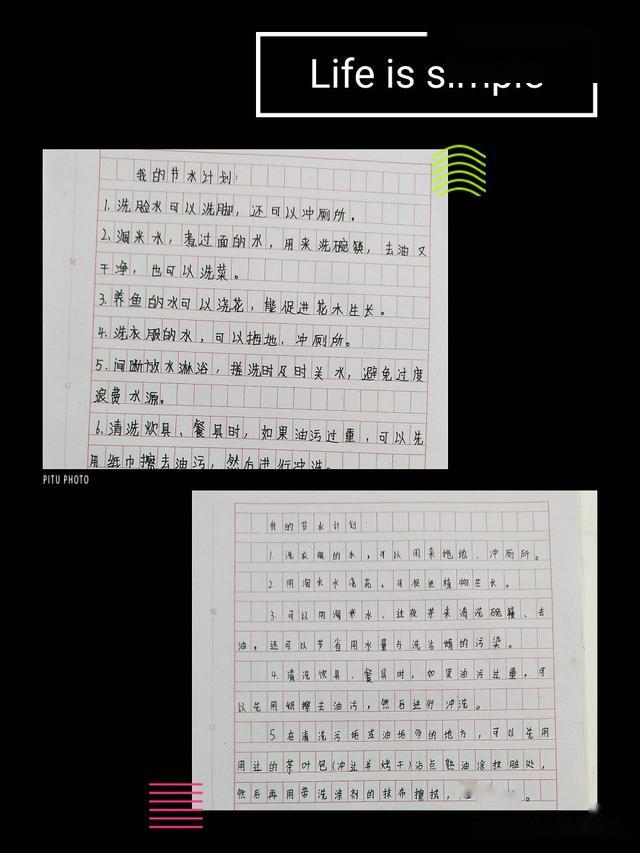 Life is simple
我的节水计划:
1.洗脸水可以洗脚，还可以冲厕所。
2.淘米水，煮过面的水，用来洗碗筷，去油又
干净，也可以洗菜。
3.养鱼的水可以浇花，能促进花木生长。
4.洗衣服的水，可以拖地、冲厕所。
5.间断放水淋浴，搓洗时及时关水，避免过度
浪费水源。
6.清洗炊具、餐具时，如果油污过重，可以先
用纸巾擦去油污，然后进行冲洗。
PITU PHOTO
我的节水计划:
1.洗衣服的水，可以用来拖地、冲厕所。
2.用淘米水浇花，可促进植物生长。
3.可以用淘米水、过夜茶来清洗碗筷、去
油。还可以节省用水量与洗洁精的污染。
4.清洗炊具、餐具时，如果油污过重，可
以先用纸擦去油污，然后进行冲洗。
5.在清洗污垢或油垢多的地方，可以先用
用过的茶叶包(冲过并烤干)沾点熟油涂抹脏处，
然后再用带洗涤剂的抹布擦拭，